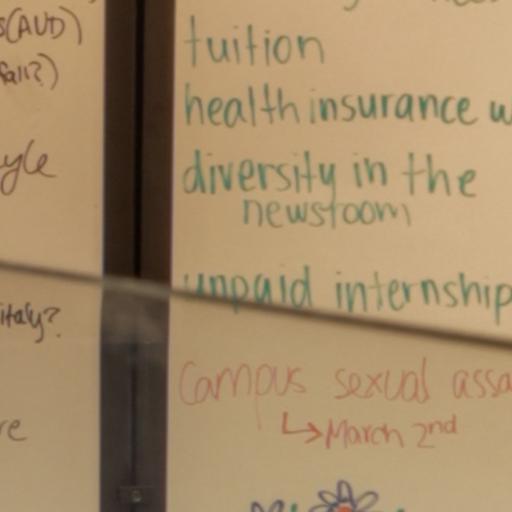 (AUD)
fall?)
tuition
health insurance w
diversity in the
newsroom
unpaid internship
italy?
campus sexual assa
↳March 2nd